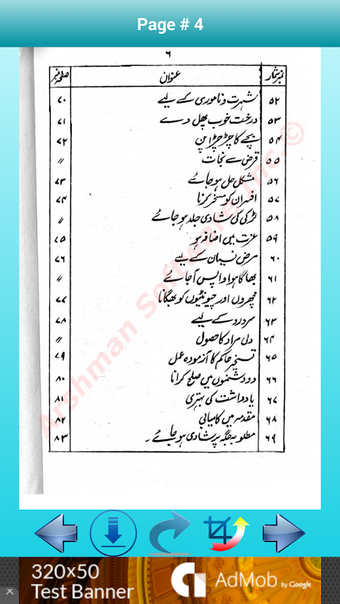 Page # 4
۶
نمبر شمار عنوان صفحہ نمبر
۵۲ شہرت و ناموری کے لیے ۷۰
۵۳ درخت خوب پھل دے ۷۱
۵۴ بچے کا چڑچڑاپن ۷۲
۵۵ قرض سے نجات 〃
۵۶ مشکل حل ہو جائے ۷۳
۵۷ افسران کو مسخر کرنا ۷۴
۵۸ لڑکی کی شادی جلد ہو جائے 〃
۵۹ عزت میں اضافہ ہو ۷۵
۶۰ مرض نسیان کے لیے ۷۶
۶۱ بھاگا ہوا واپس آ جائے 〃
۶۲ مچھروں اور چیونٹیوں کو بھگانا ۷۷
۶۳ سر درد کے لیے ۷۸
۶۴ دلی مراد کا حصول 〃
۶۵ تسخیر حاکم کا آزمودہ عمل ۷۹
۶۶ دو دشمنوں میں صلح کرانا ۸۰
۶۷ یادداشت کی بہتری ۸۱
۶۸ مقدمہ میں کامیابی ۸۲
۶۹ مطلوبہ جگہ پر شادی ہو جائے۔ ۸۳
Arshman Software Inc.©
320x50
Test Banner
AdMob by Google